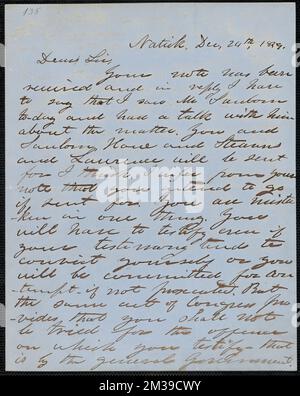 135
Natick, Dec, 24th, 1859,
Dear Sir,
Your note has been
received and in reply I have
to say that I saw Mr Sanborn
to day and had a talk with him
about the matter. You and
Sanborn, Howe and Stearns
and Lawrence will be sent
for I think. I infer from your
note that you intend to go
if sent for. You are mista
ken in one thing. You
will have to testify even if
your testimony tends to
convict yourself or you
will be committed for con
tempt if not prosecuted. But
the same act of Congress pro
vides that you shall not
be tried for the offence
on which you testify that
is by the general Government.
alamy
Image ID: 2M39CWY
www.alamy.com